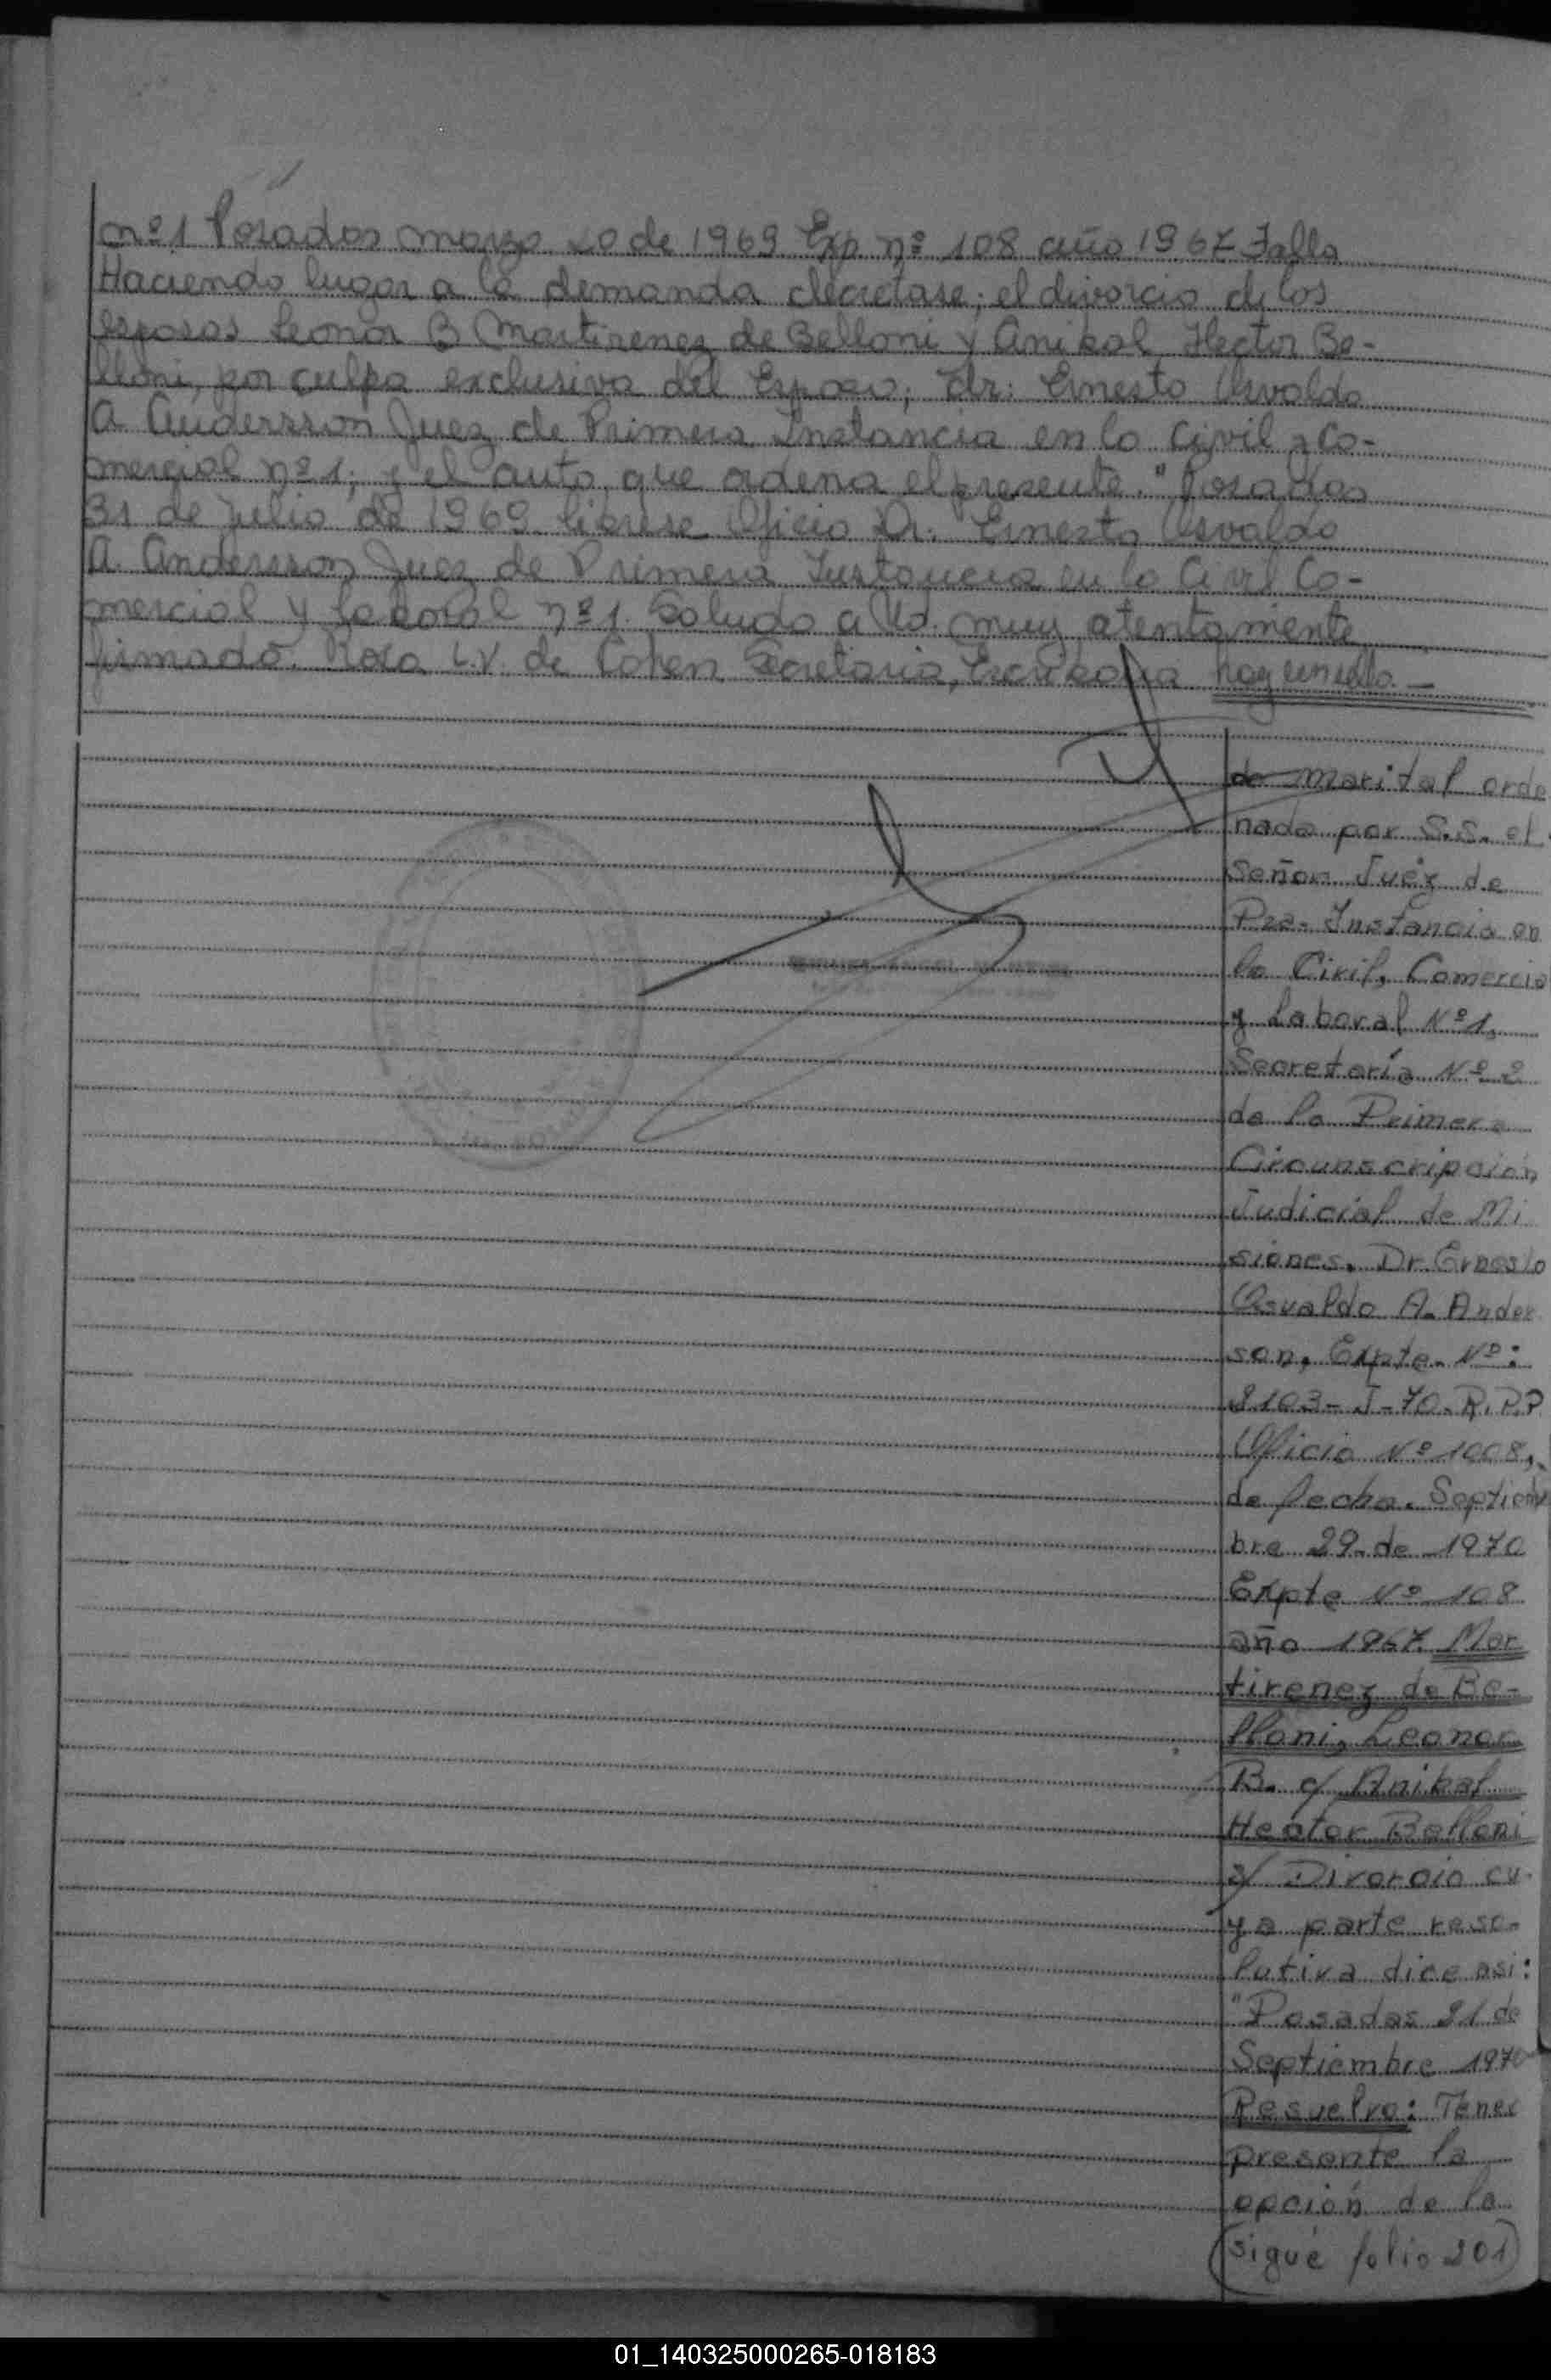 nº 1 Posadas marzo 20 de 1969 Exp. nº 108 año 1967 Falla
Haciendo lugar a la demanda decretase; el divorcio de los
esposos Leonor B Martirenez de Belloni y Anibal Hector Be-
lloni, por culpa exclusiva del Esposo; Dr: Ernesto Osvaldo
A Anderssron Juez de Primera Instancia en lo Civil y Co-
mercial nº 1; y el auto que ordena el presente. "Posadas
31 de Julio de 1969 librese Oficio Dr. Ernesto Osvaldo
A. Andersson Juez de Primera Instancia en lo Civil Co-
mercial y Laboral nº 1. Saludo a Ud. muy atentamente
firmado. Rosa L.V. de Cohen Secretaria, Escribana hay un sello.-
do marital orde
nado por S.S. el
Señor Juéz de
Pra. Instancia en
lo Civil, Comercia
y Laboral Nº 1,
Secretaría Nº 2
de la Primera
Circunscripción
Judicial de Mi
siones. Dr. Ernesto
Osvaldo A. Ander
son, Expte. Nº:
2103-J-70. R.P.P
Oficio Nº 1008,
de fecha. Septiem
bre 29 de 1970
Expte Nº 108
año 1967. Mar
tirenez de Be-
lloni, Leonor
B. c/ Anibal
Hector Belloni
s/ Divorcio cu-
ya parte reso-
lutiva dice asi:
"Posadas 21 de
Septiembre 1970
Resuelvo: Tener
presente la
opción de la
(sigue folio 201)
01_140325000265-018183